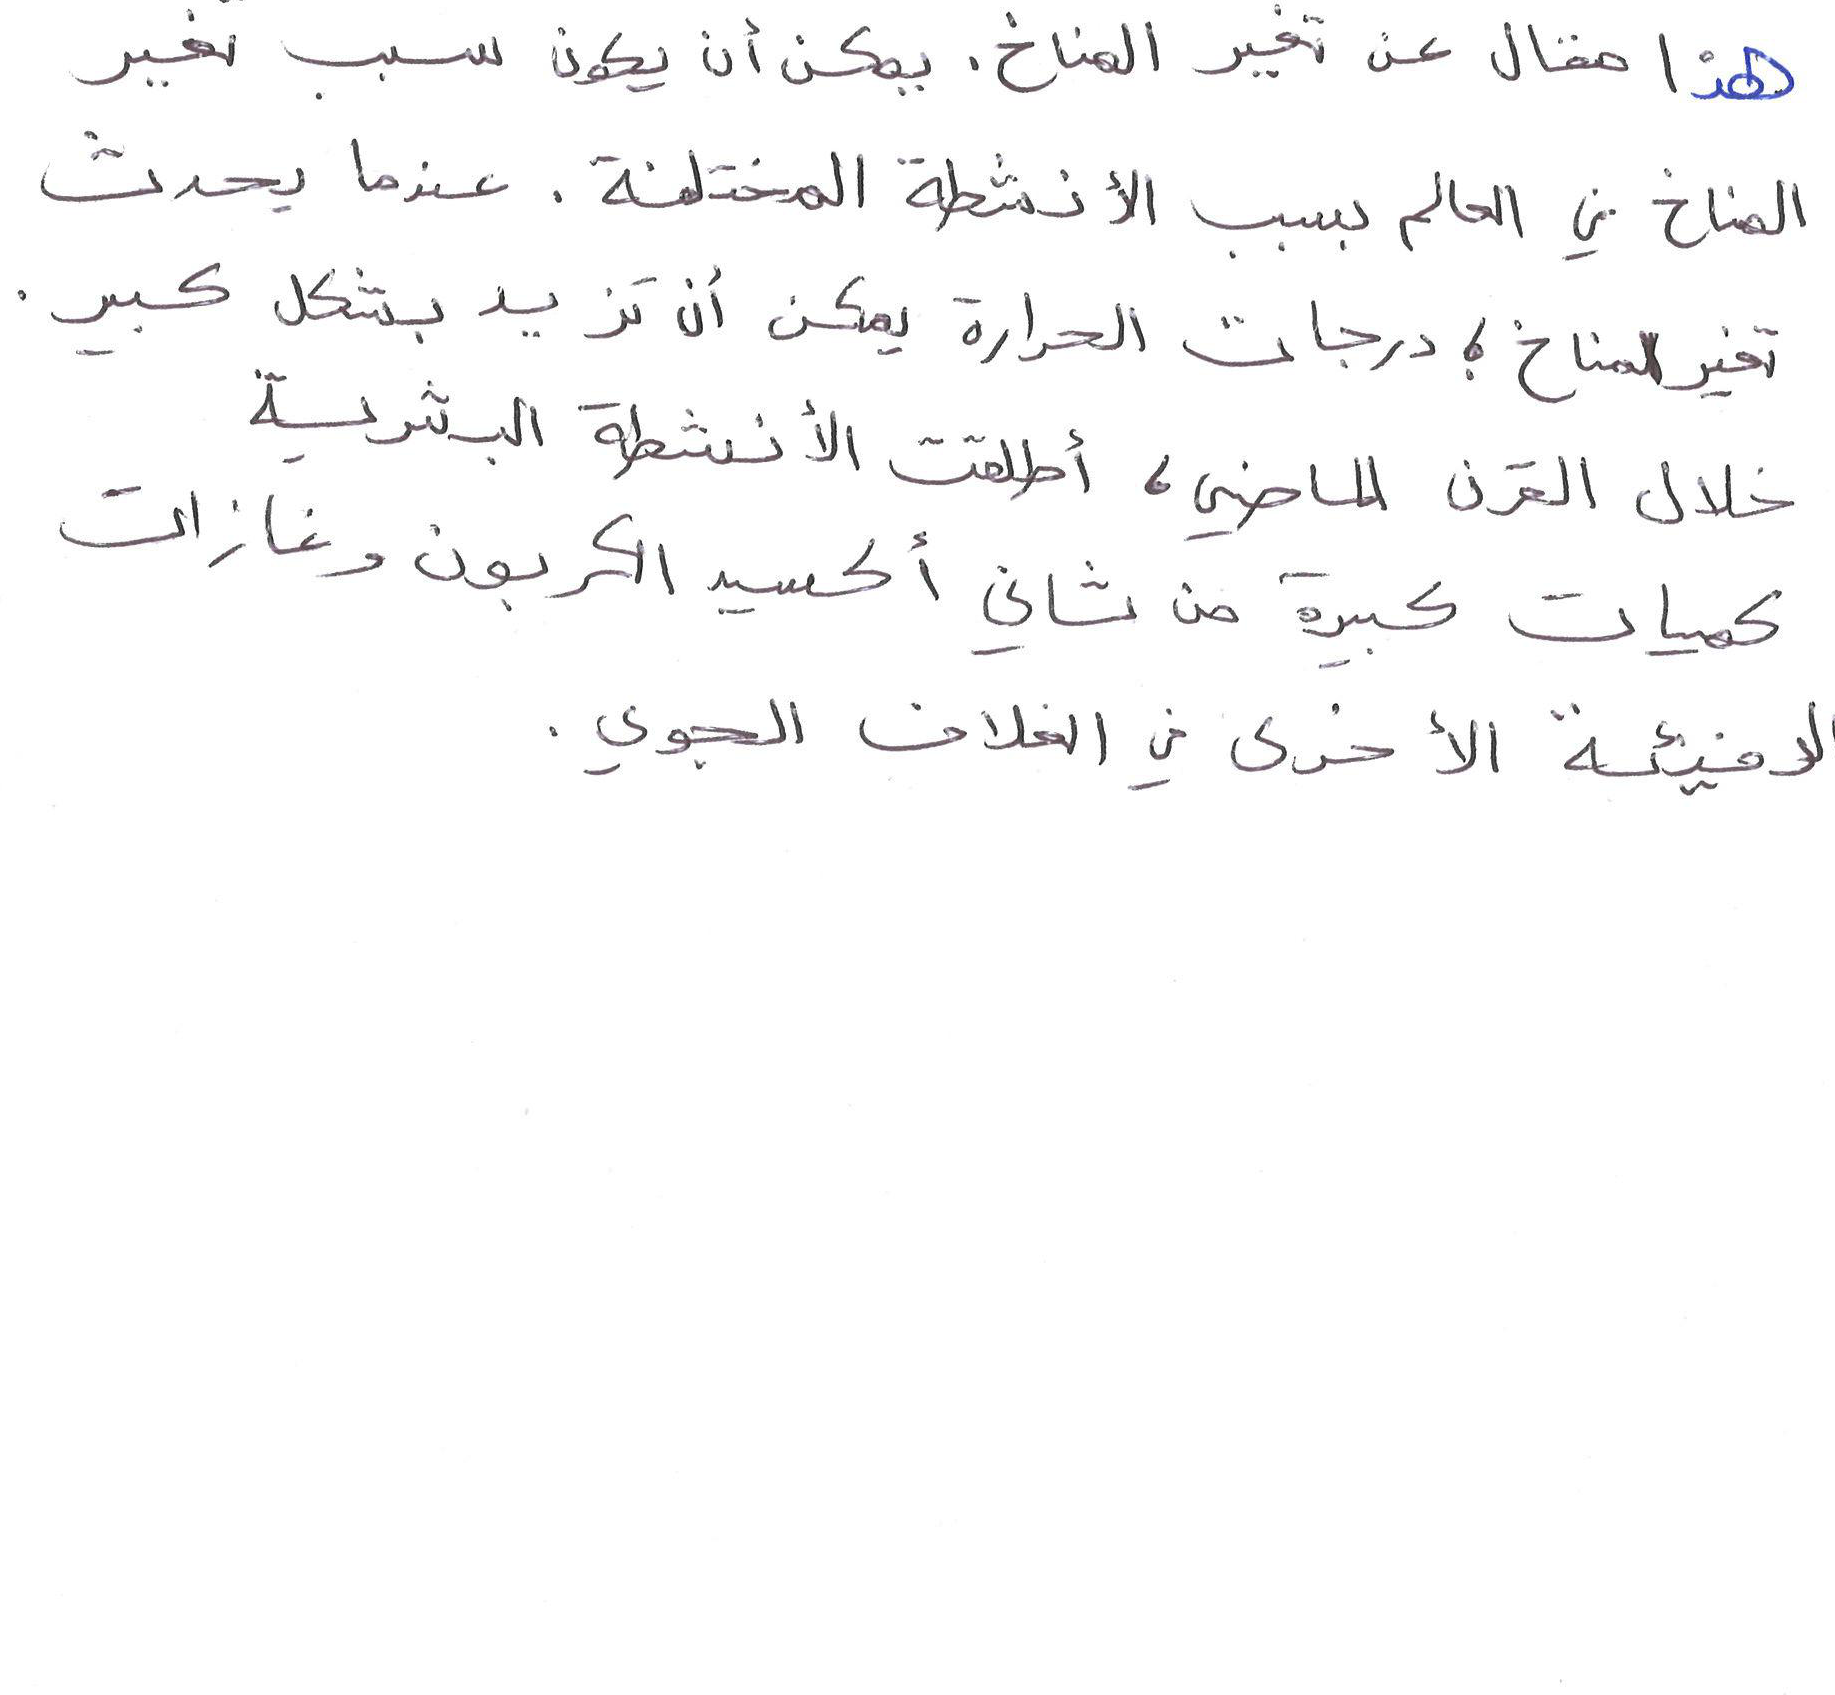 هذا مقال عن تغير المناخ. يمكن أن يكون سبب تغير
المناخ في العالم بسبب الأنشطة المختلفة. عندما يحدث
تغير المناخ، درجات الحرارة يمكن أن تزيد بشكل كبير.
خلال القرن الماضي، أطلقت الأنشطة البشرية
كميات كبيرة من ثاني أكسيد الكربون وغازات
الدفيئة الأخرى في الغلاف الجوي.